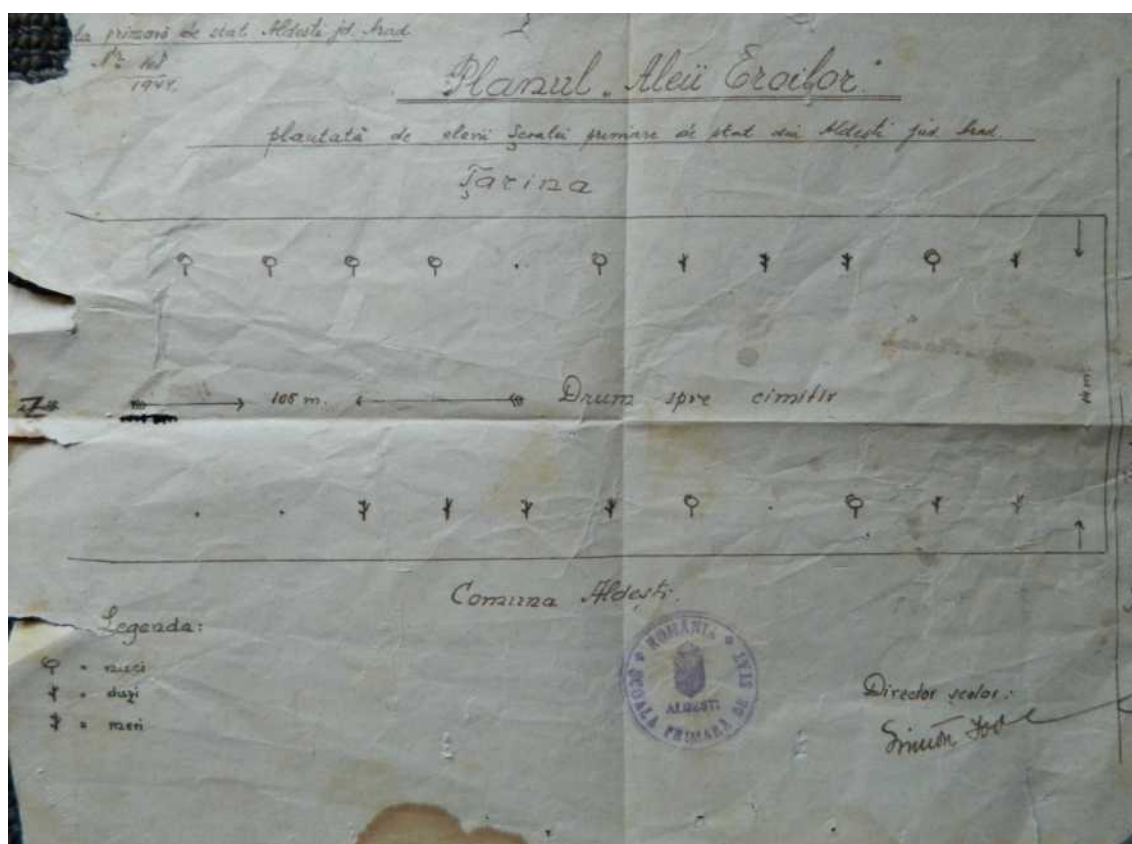 la primară de stat Aldești jd. Arad
Nr.
1944.
Planul „Aleii Eroilor”
plantată de elevii Școalei primare de stat din Aldești jud. Arad.
Țarina
105 m.
Drum spre cimitir
m.
Comuna Aldești.
Legenda:
= nuci
= duzi
= meri
ROMÂNIA
ȘCOALA PRIMARĂ DE STAT
ALDEȘTI
Director școlar: